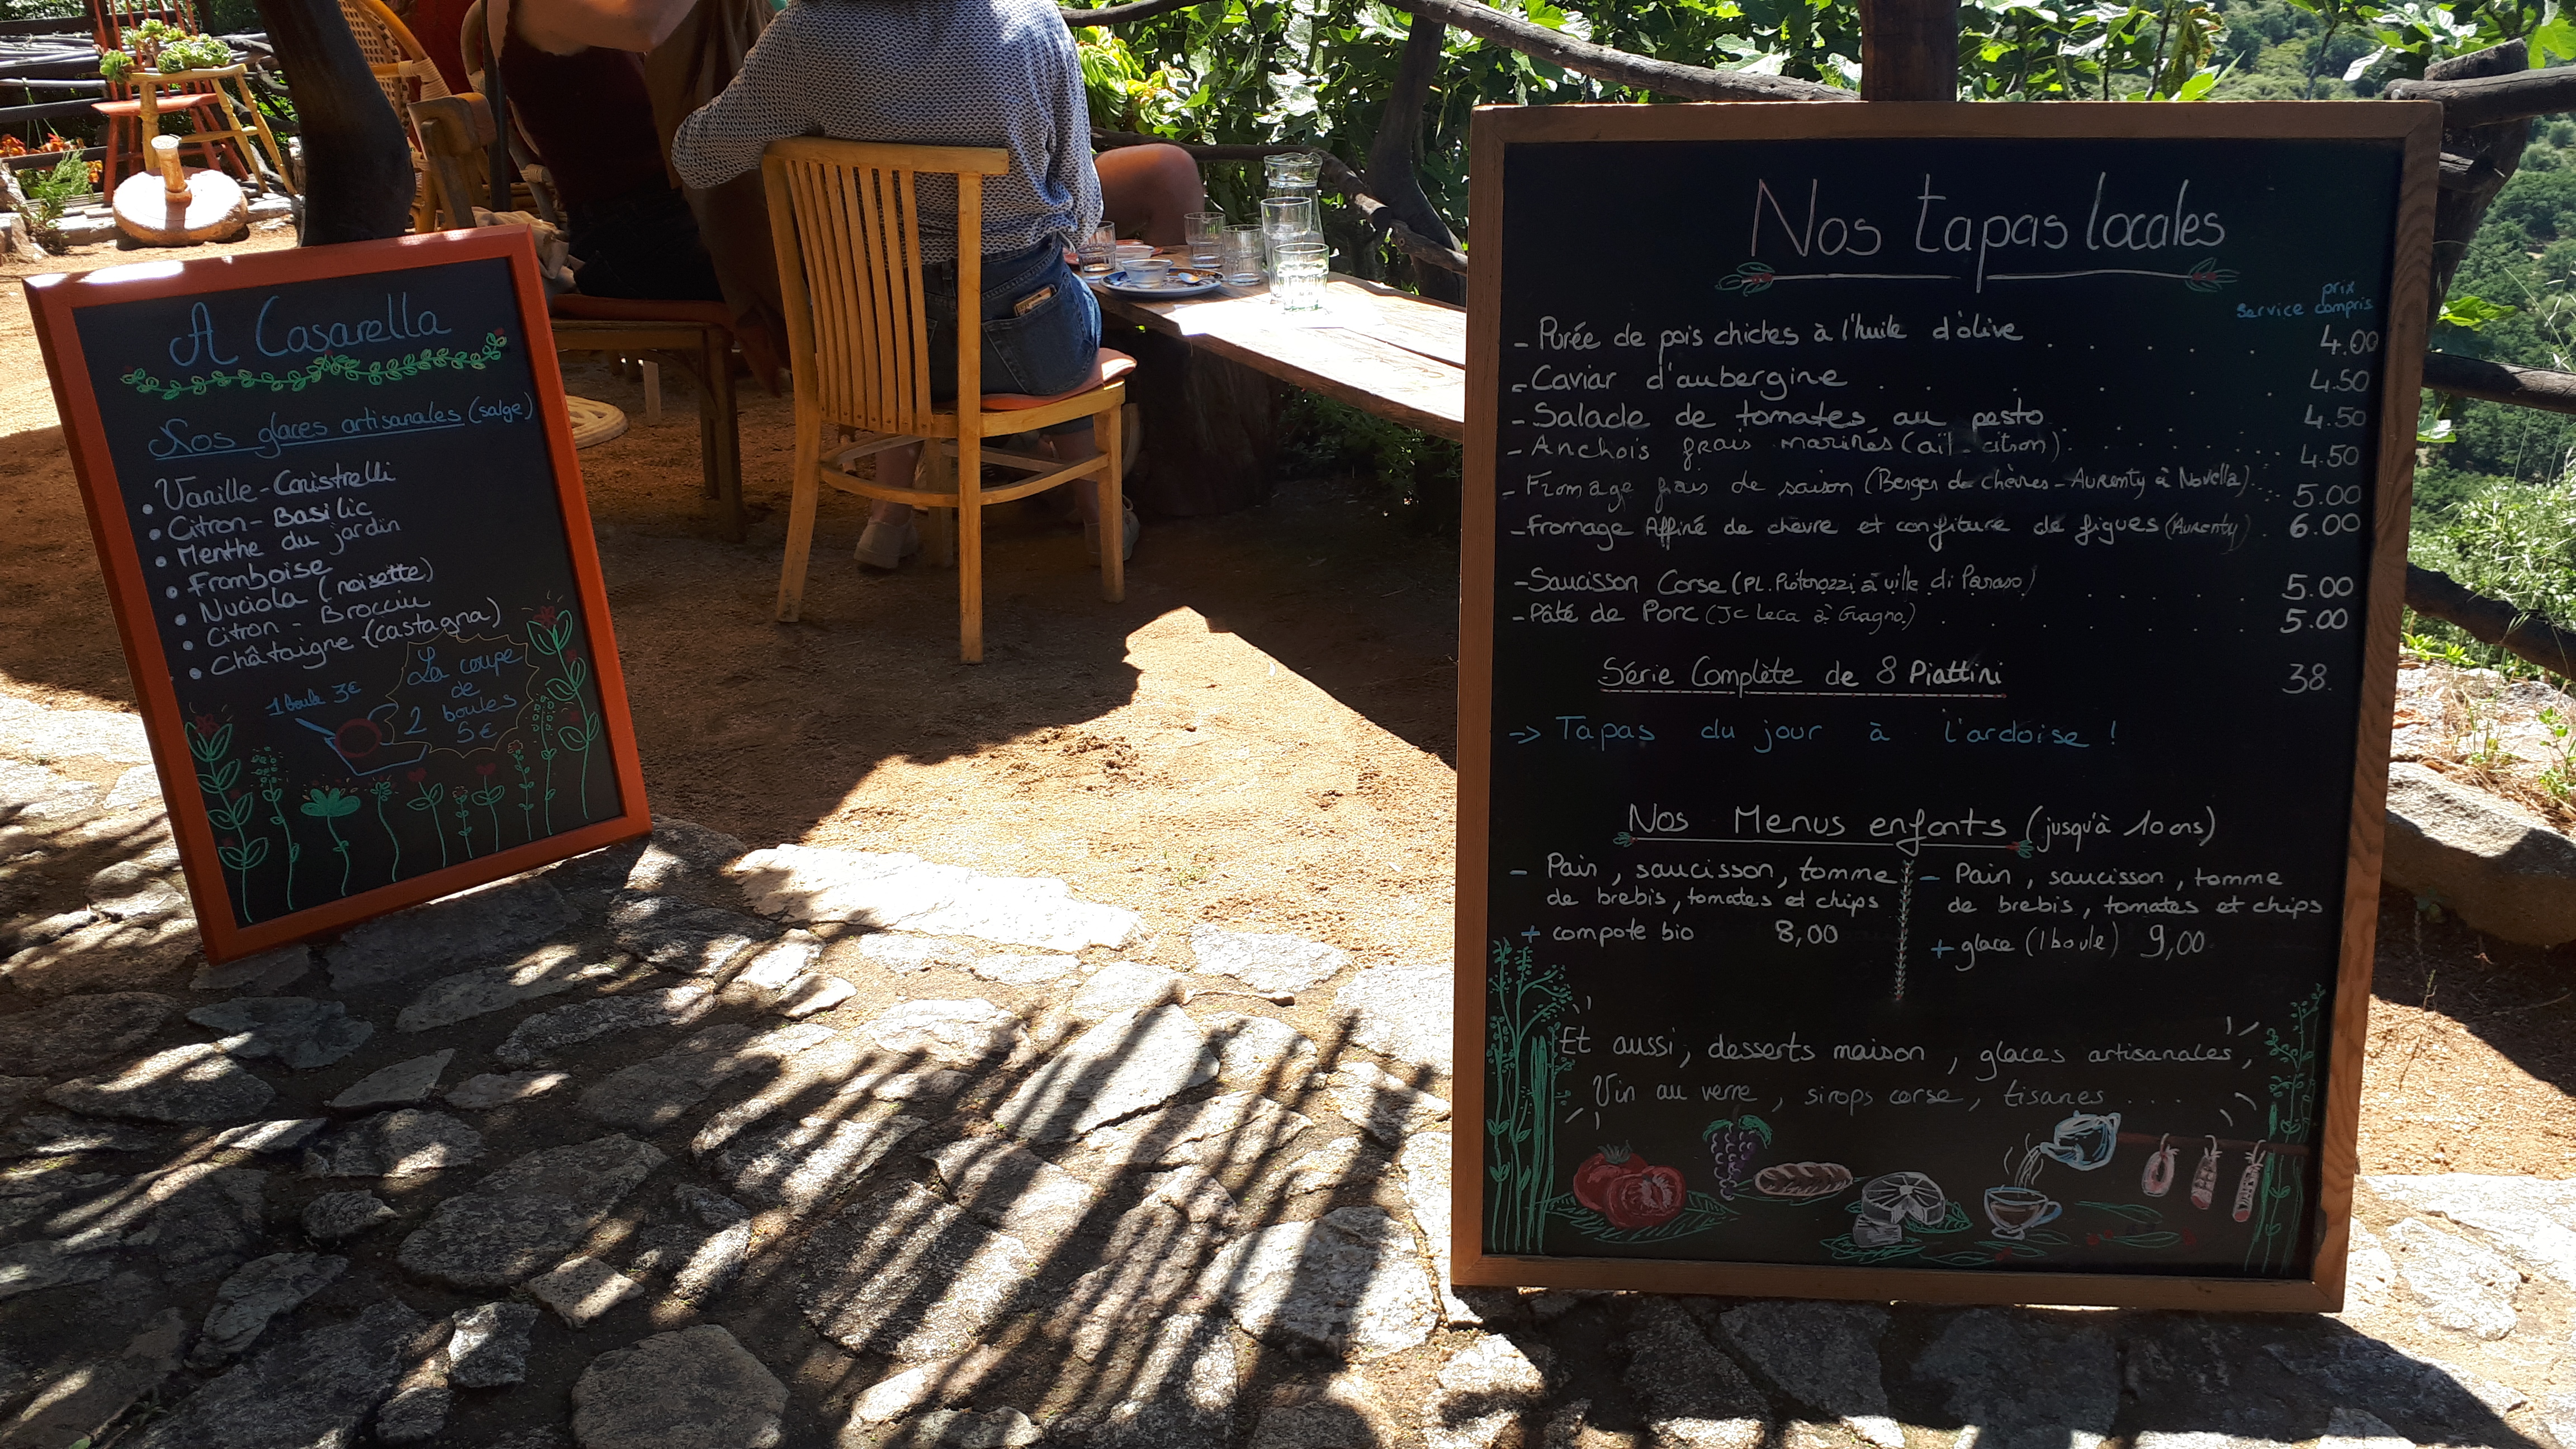 A Casarella
Nos glaces artisanales (salge)
• Vanille - Canistrelli
• Citron - Basilic
• Menthe du jardin
• Framboise
• Nuciola (noisette)
• Citron - Brocciu
• Châtaigne (castagna)
1 boule 3€
La coupe
de
2 boules
5€
Nos tapas locales
prix
service compris
- Purée de pois chiches à l'huile d'olive . . . . . 4.00
- Caviar d'aubergine . . . . . 4.50
- Salade de tomates au pesto . . . . . 4.50
- Anchois frais marinés (ail - citron) . . . . . 4.50
- Fromage frais de saison (Berger de chèvres - Aurenty à Novella) . . . 5.00
- Fromage Affiné de chèvre et confiture de figues (Aurenty) . 6.00
- Saucisson Corse (PL. à ville di Paraso) . . . . . 5.00
- Pâté de Porc (Jc Leca à) . . . . . 5.00
Série Complète de 8 Piattini 38.
-> Tapas du jour à l'ardoise !
Nos Menus enfants (jusqu'à 10 ans)
- Pain, saucisson, tomme
de brebis, tomates et chips
+ compote bio 8,00
- Pain, saucisson, tomme
de brebis, tomates et chips
+ glace (1 boule) 9,00
Et aussi, desserts maison, glaces artisanales,
Vin au verre, sirops corse, tisanes . . .